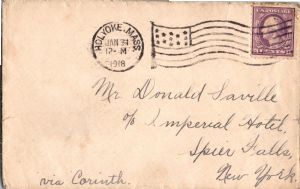 HOLYOKE, MASS.
JAN 31
12-M
1918
U.S. POSTAGE
Mr Donald Saville
c/o Imperial Hotel,
Spier Falls,
New York.
via Corinth.